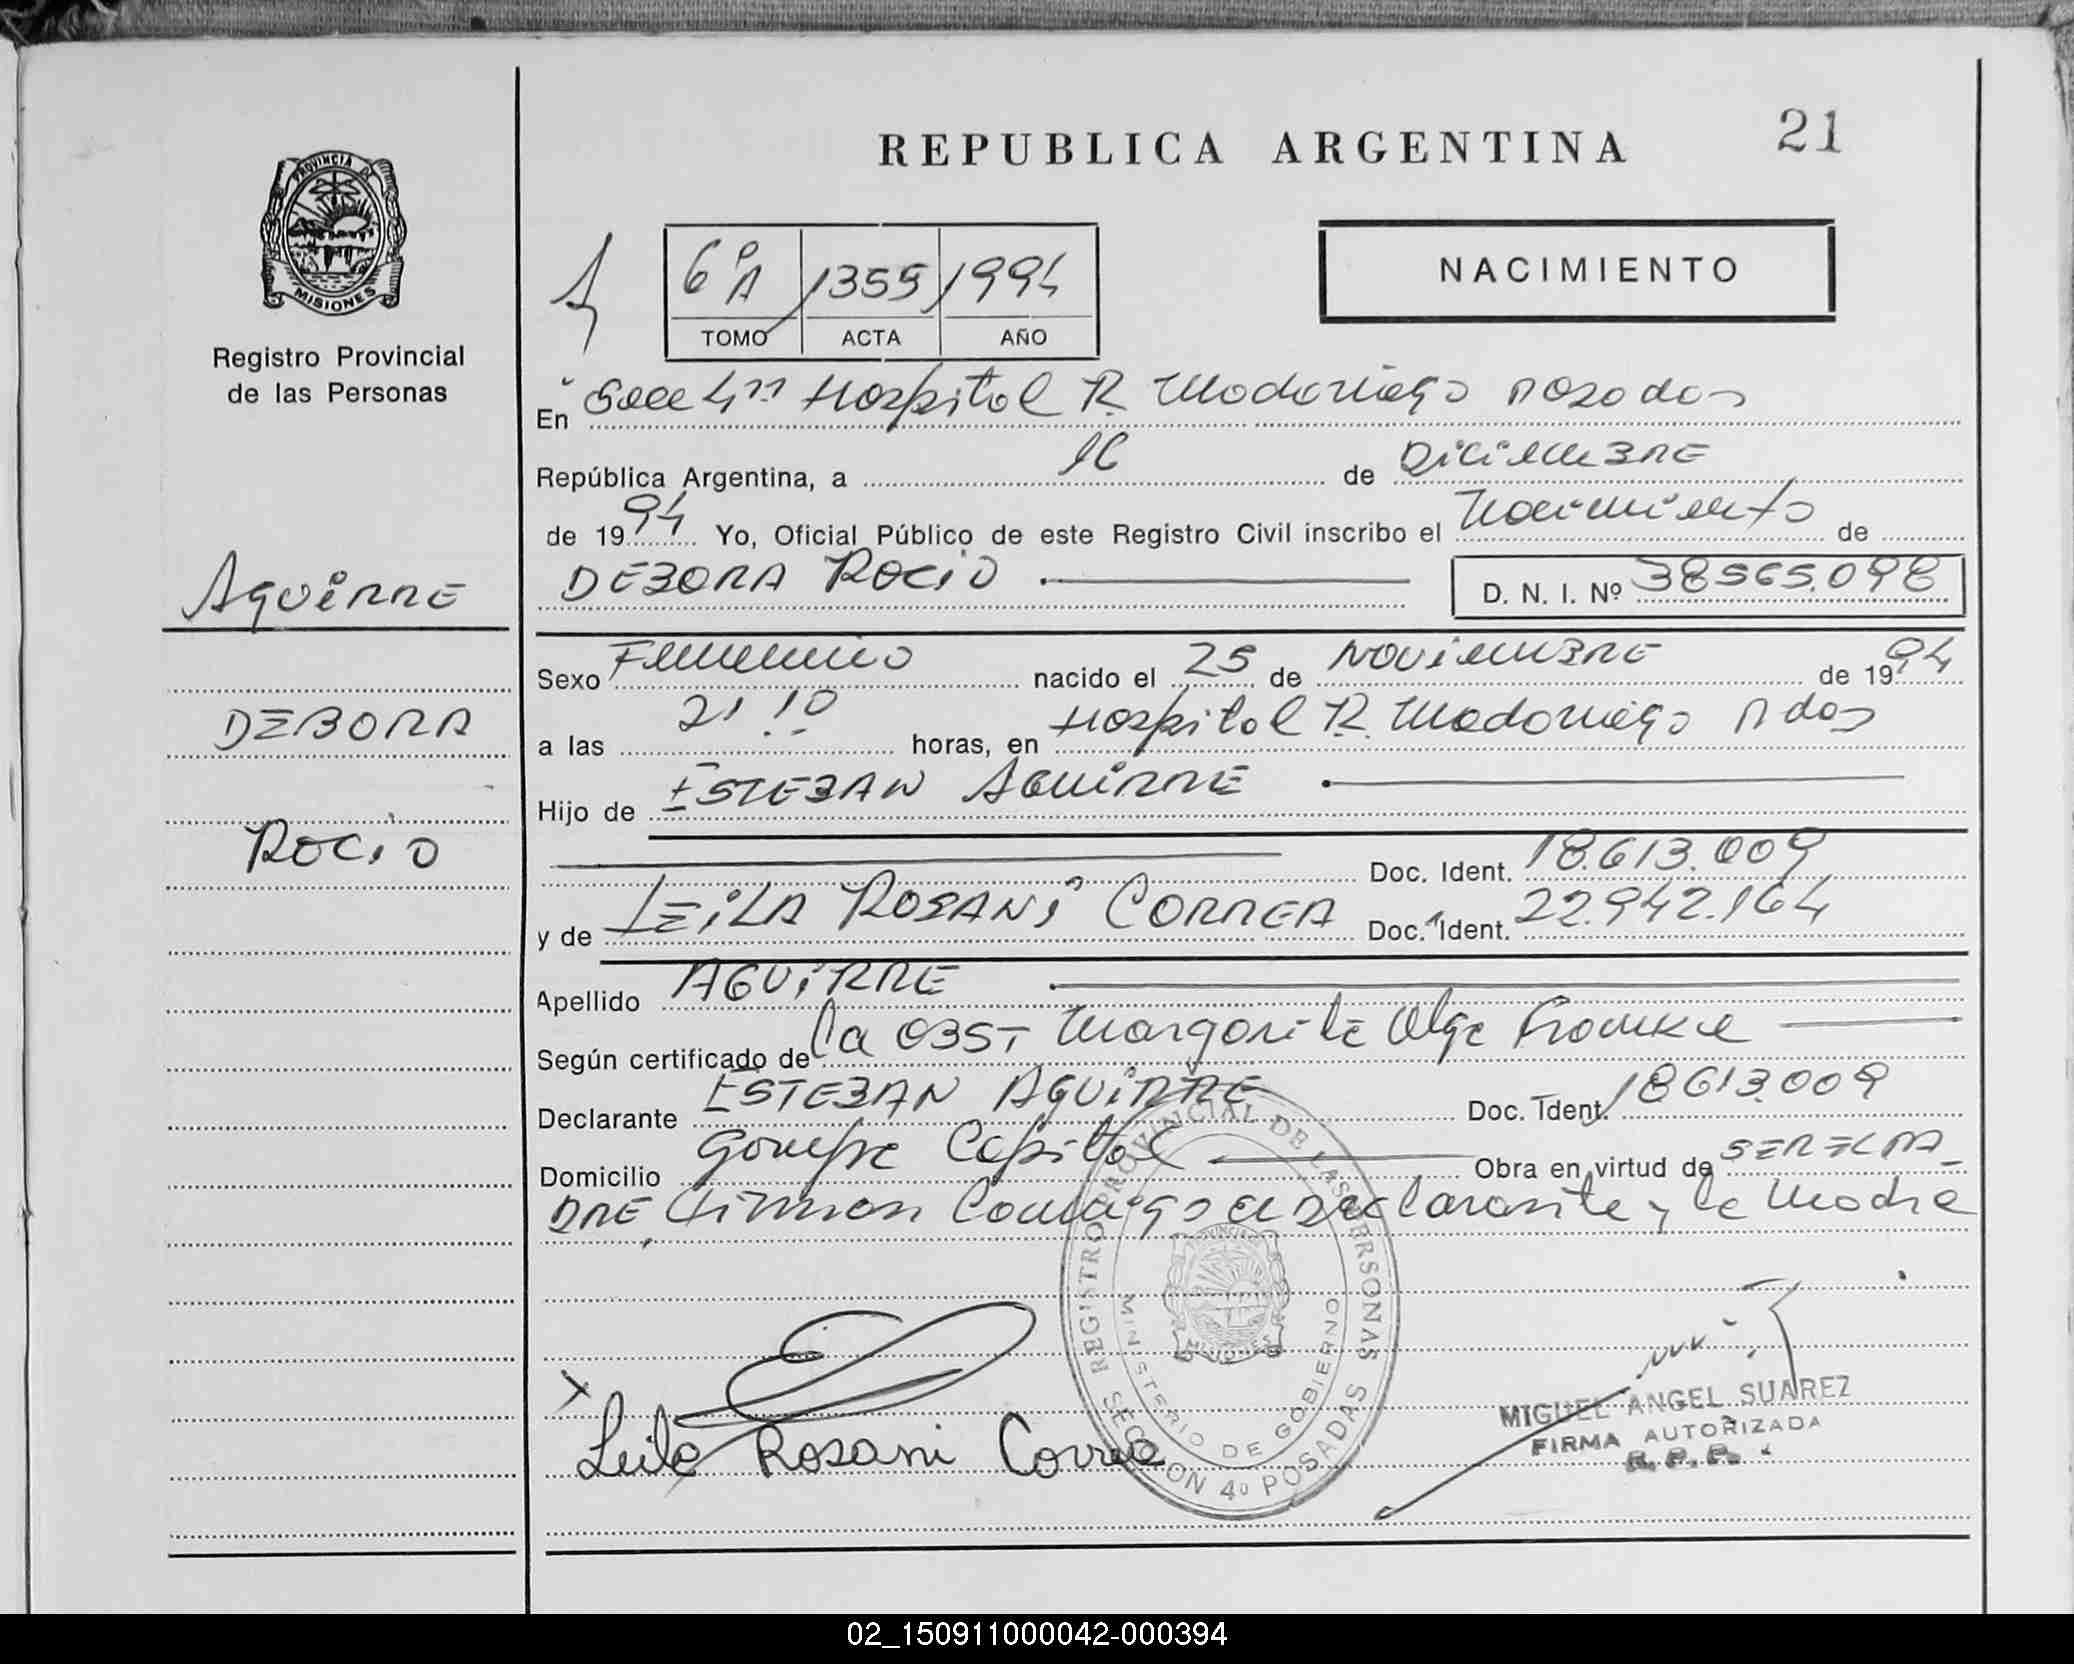 REPUBLICA ARGENTINA
21
PROVINCIA DE
MISIONES
Registro Provincial
de las Personas
6º A 1355 1994
TOMO ACTA AÑO
NACIMIENTO
En Secc 4ta Hospital R. Madariaga Posadas
República Argentina, a 16 de DiciemBRE
de 1994 Yo, Oficial Público de este Registro Civil inscribo el Nacimiento de
DEBORA ROCIO D. N. I. Nº 38565.098
AGUIRRE
DEBORA
ROCIO
Sexo Femenino nacido el 25 de NOViemBRE de 1994
a las 21 10 horas, en Hospital R. Madariaga Pdas
Hijo de ESTEBAN AGUIRRE
Doc. Ident. 18.613.009
y de LEILA ROSANI CORREA Doc. Ident. 22.942.164
Apellido AGUIRRE
Según certificado de la OBST Margarita Olga
Declarante ESTEBAN AGUIRRE Doc. Ident. 18613.009
Domicilio Garupa Capital Obra en virtud de SER EL PA
DRE, firman Conmigo el Declarante y la Madre
Leila Rosani Correa
REGISTRO PROVINCIAL DE LAS PERSONAS
MINISTERIO DE GOBIERNO
SECCION 4º POSADAS
MIGUEL ANGEL SUAREZ
FIRMA AUTORIZADA
R. P. P.
02_150911000042-000394